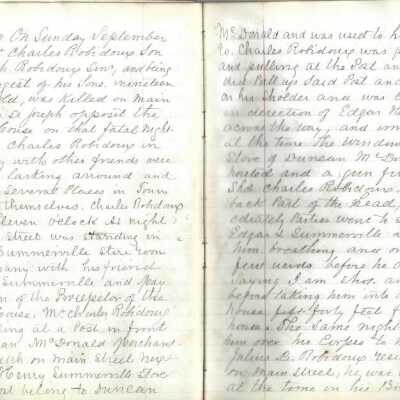 On Sunday September
Charles Robidoux Son
Robidoux Senr, and being
of his Sons, nineteen
old, was killed on Main
St Joseph opposit the
house on that fatal night.
Charles Robidoux in
with other friends were
larking arround and
Several Places in Town
themselves. Charles Robidoux
eleven oclock At night
Street was standing in
Summerville Store room
any with his friend
Summerville and
of the Proprietor of the
house. Mr Charles Robidoux
ing at a Post in front
an McDonald Merchant
eph on Main Street next
Henry Summerville Store
belong to Duncan
McDonald and was used to
to. Charles Robidoux was
and pulling at the Post and
Pull up Said Post and
on his Sholder and was
in derection of Edgar
across the way, and
at the time the Window
Store of Duncan McDo
and a gun
Shd. Charles Robidoux.
back Part of the head,
Parties went to
Edgar S Summerville
him breathing and
few words before he
Saying I am Shot. and
before taking him into
house fift forty feet
house. The Same night
him over his Corpse to
Julius C. Robidoux
on Main Street, he was
at the time on his